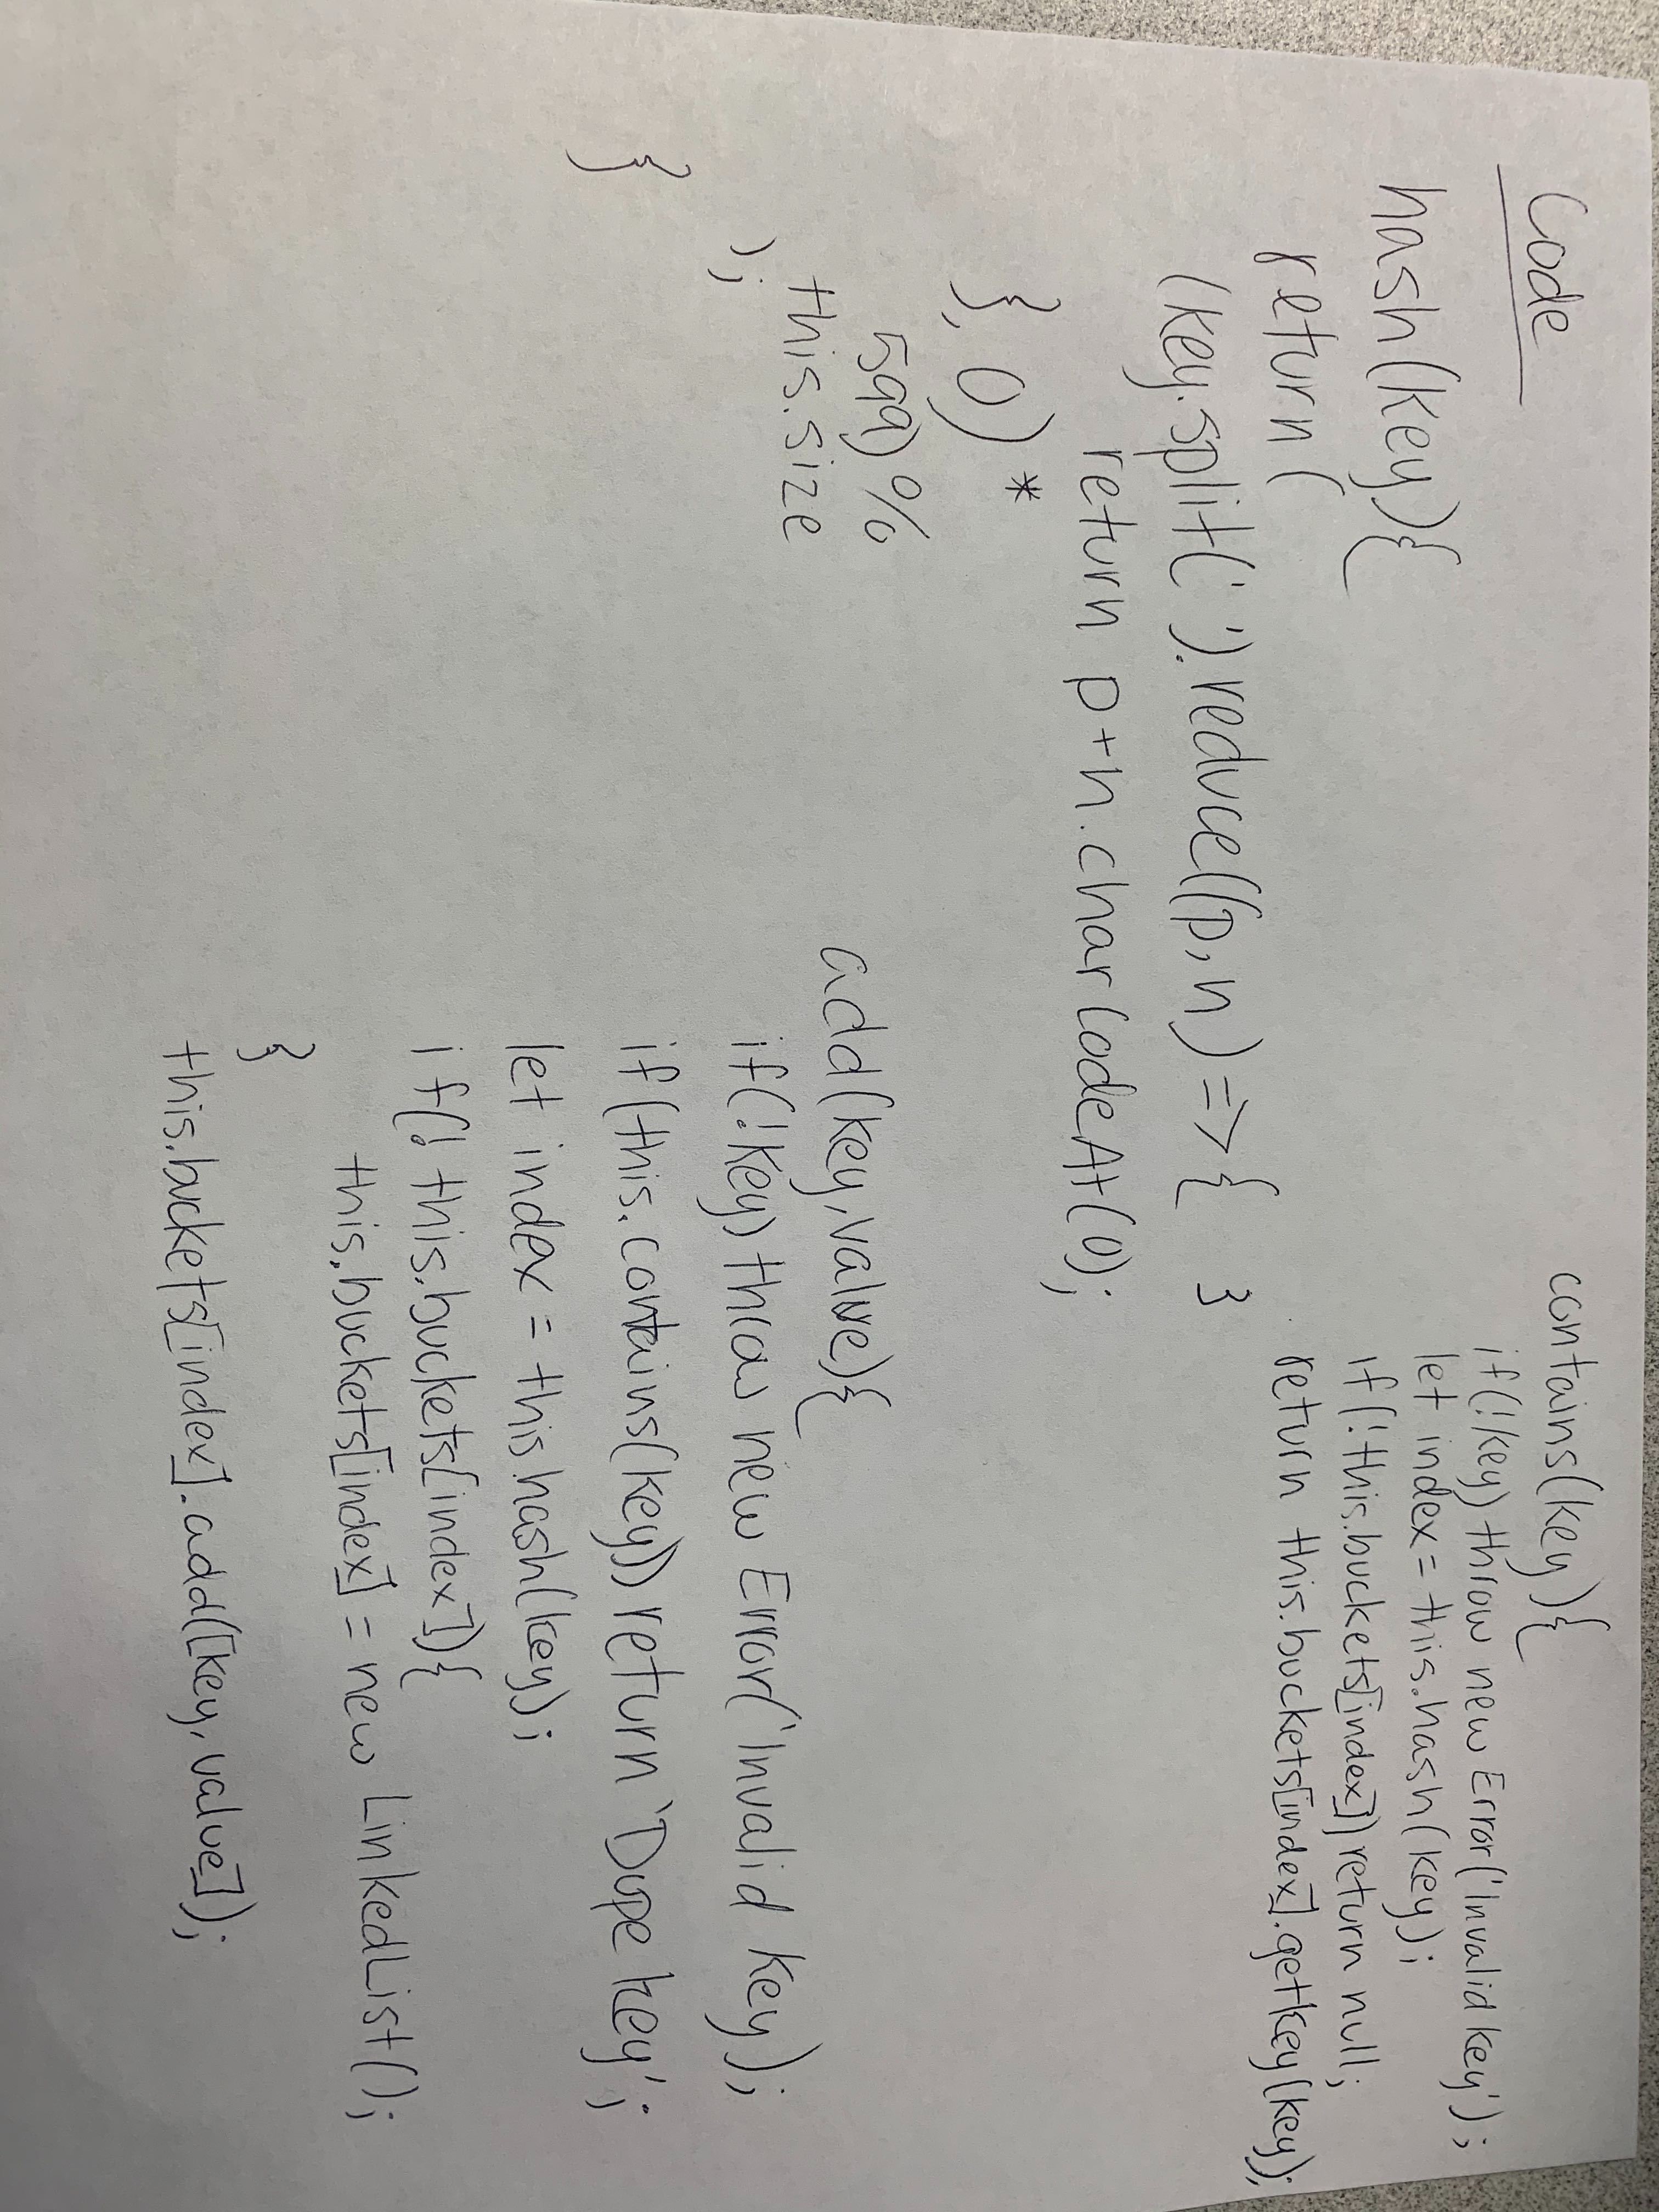 Code
hash(key){
return(
(key.split('').reduce((p,n)=>{
return p+n.charCodeAt(0);
},0)*
599)%
this.size
);
}
contains(key){
if(!key)throw new Error('Invalid key');
let index=this.hash(key);
if(!this.buckets[index])return null;
return this.buckets[index].getKey(key);
}
add(key,value){
if(!key)throw new Error('Invalid key);
if(this.contains(key))return 'Dupe key';
let index = this.hash(key);
if(!this.buckets[index]){
this.buckets[index] = new LinkedList();
}
this.buckets[index].add([key,value]);